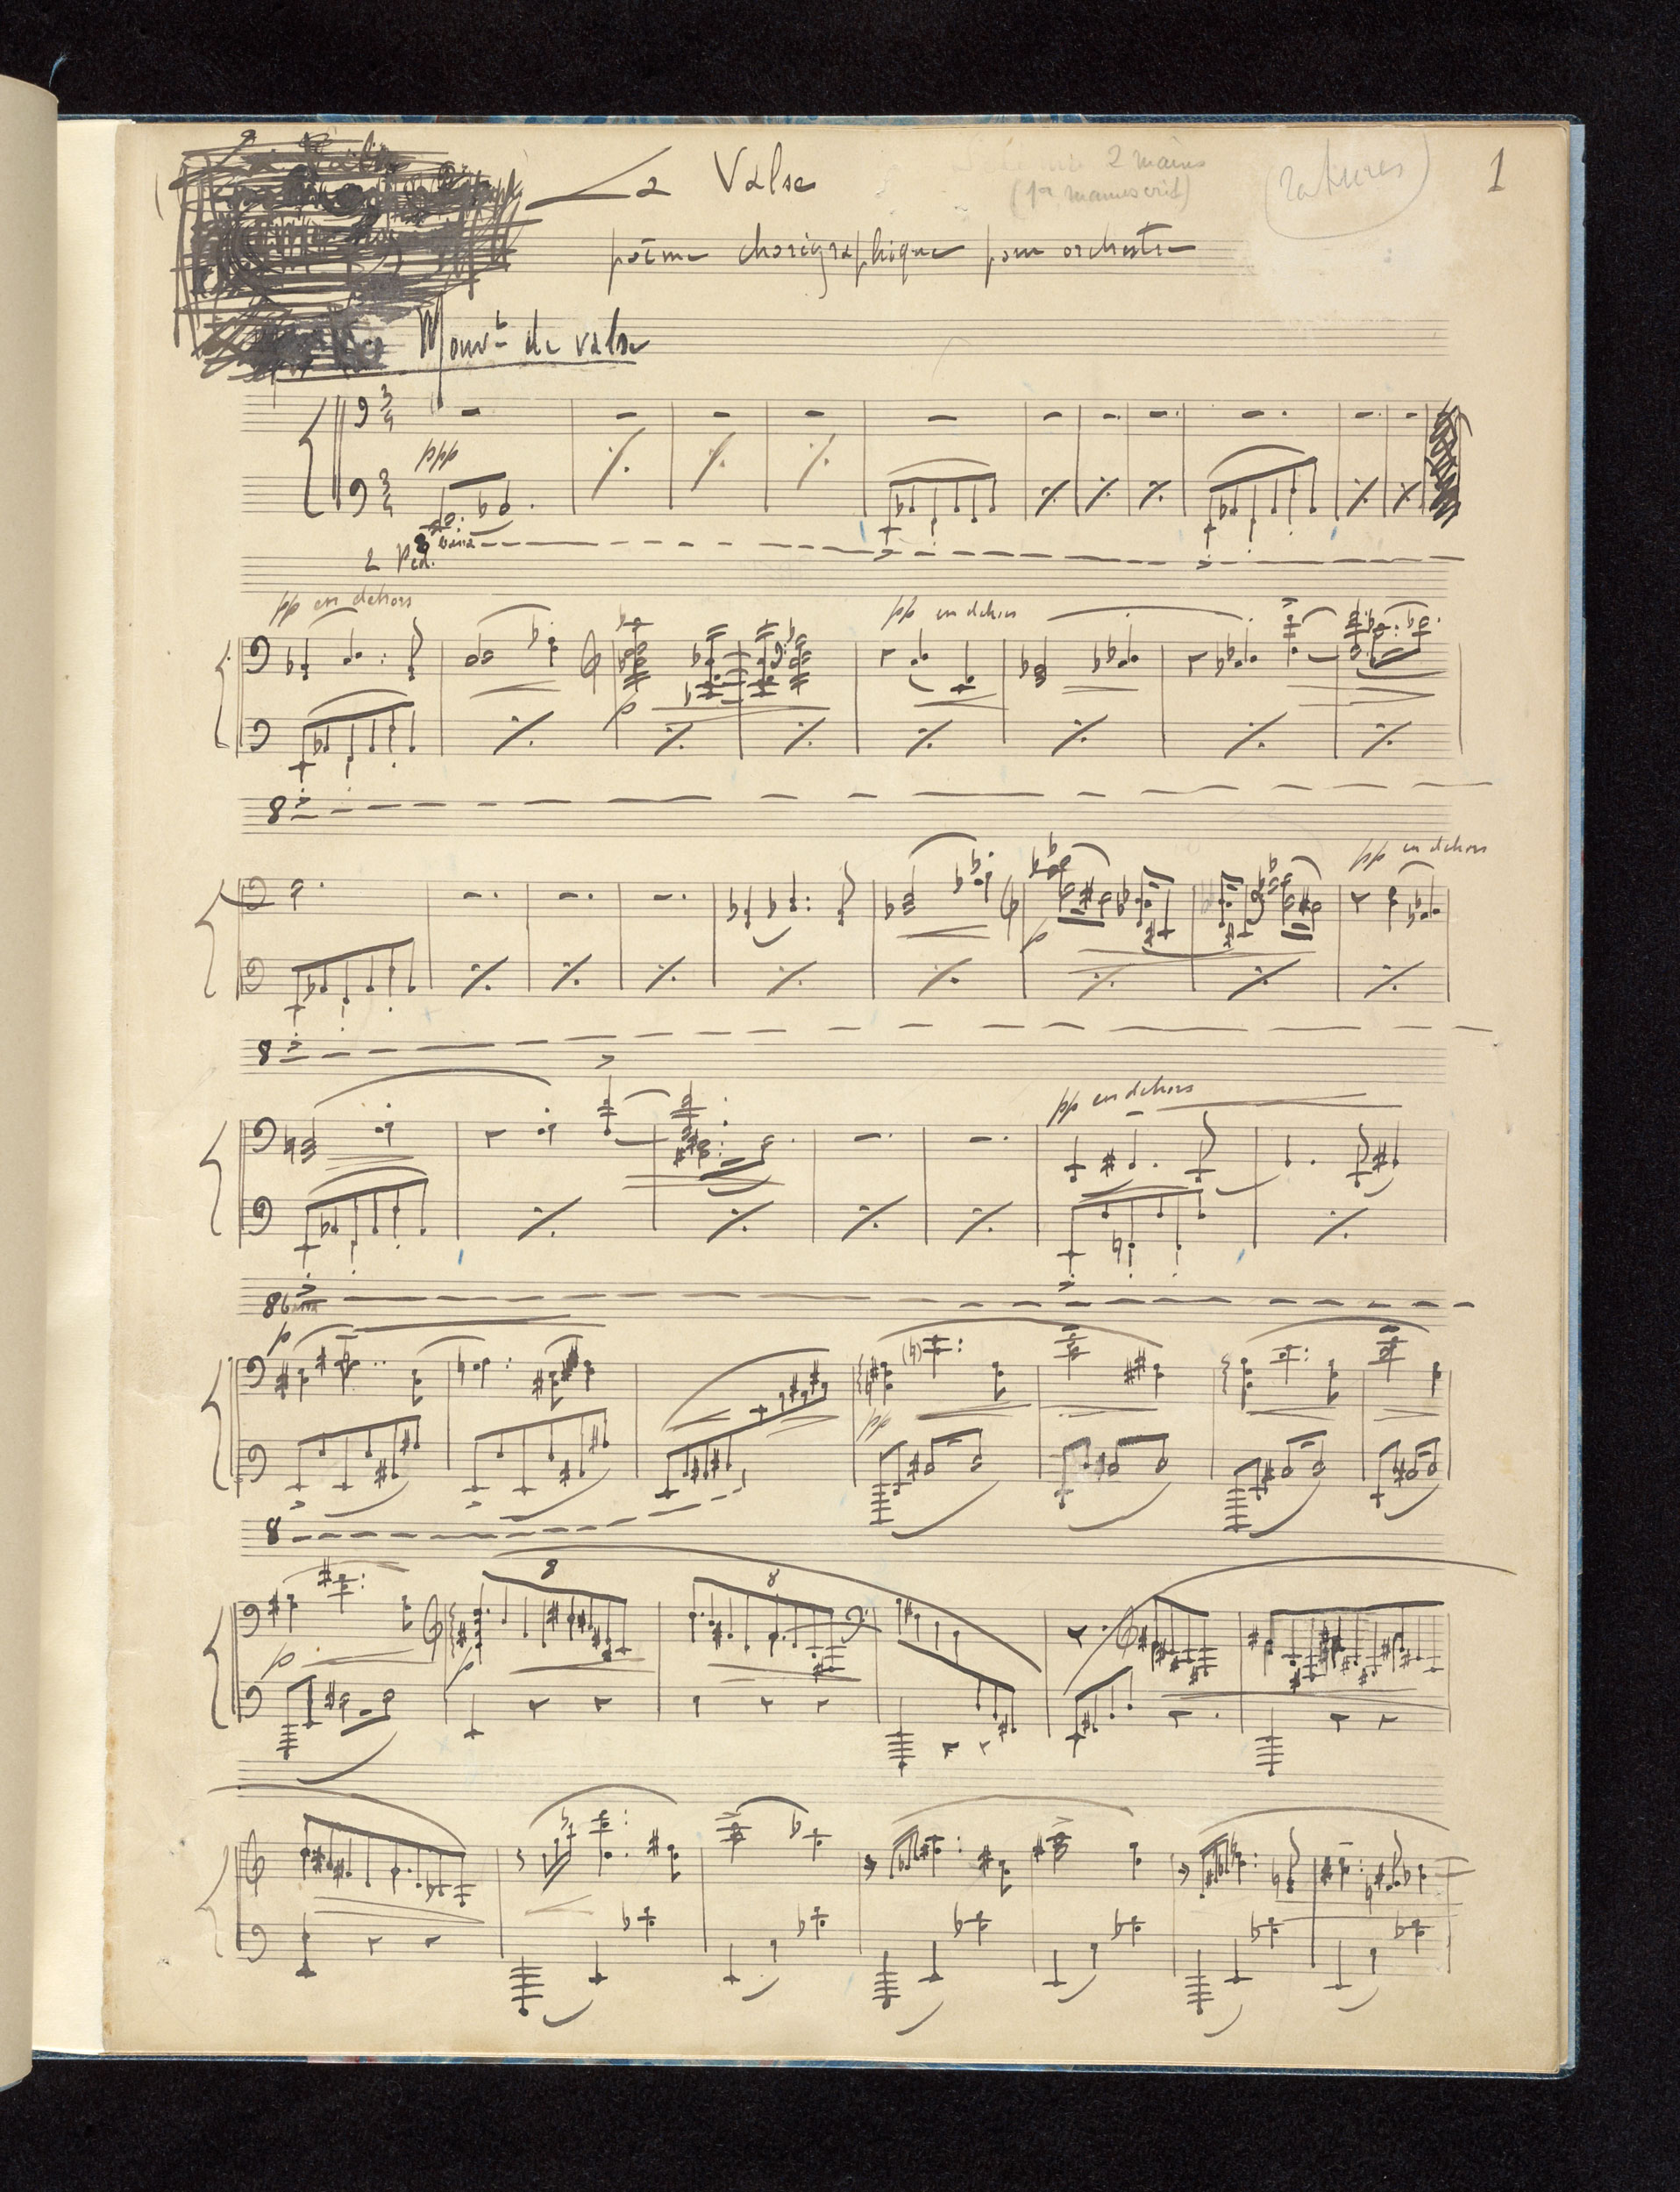 La Valse
2 mains
(1er manuscrit)
(ratures)
1
poème choregraphique pour orchestre
Mouvt de valse
3
4
ppp
3
4
8 bassa
2 Ped.
pp en dehors
pp en dehors
p
8
pp en dehors
p
8
pp en dehors
8 bassa
p
pp
8
8
8
p
p